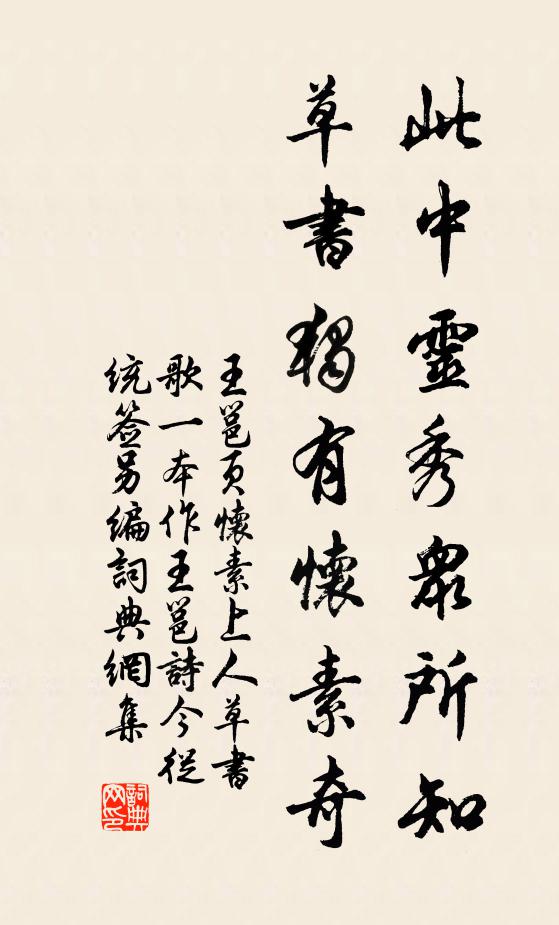 此中靈秀衆所知
草書獨有懷素奇
王邕頁懷素上人草書
歌一本作王邕詩今從
统签另编詞典網集
詞典网印